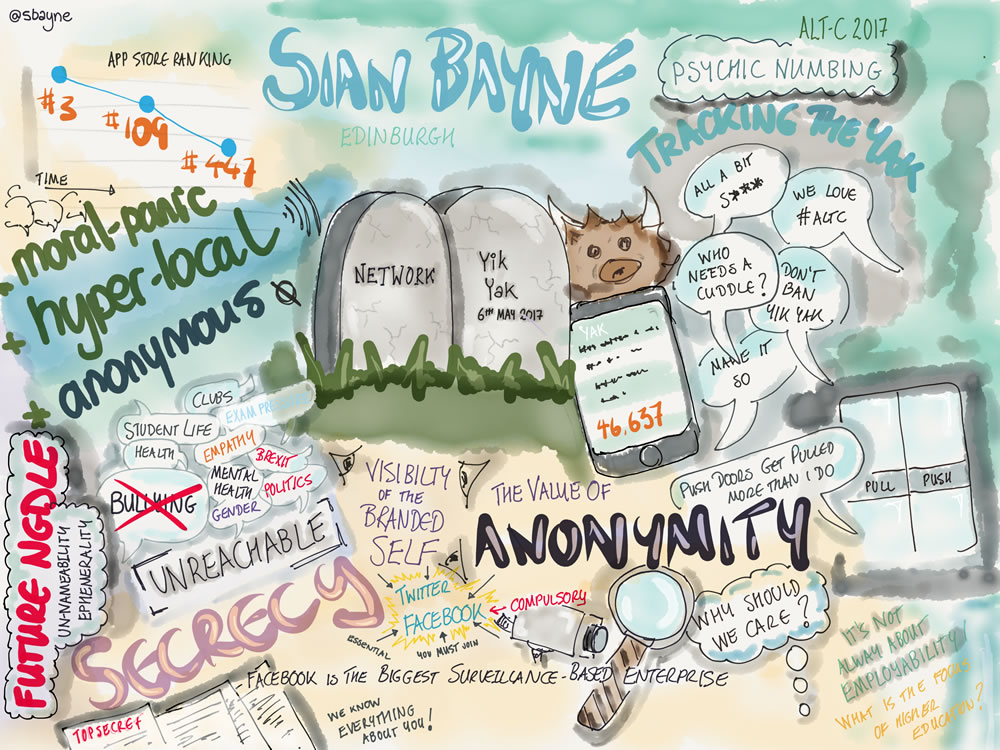 @sbayne
APP STORE RANKING
#3
#109
#447
TIME
SIAN BAYNE
EDINBURGH
ALT-C 2017
PSYCHIC NUMBING
TRACKING THE YAK
moral-panic
+ hyper-local
+ anonymous
+
NETWORK
Yik
Yak
6TH MAY 2017
YAK
46,637
ALL A BIT
S****
WE LOVE
#ALTC
WHO
NEEDS A
CUDDLE?
DON'T
BAN
YIK YAK
NAME IT
SO
CLUBS
EXAM
STUDENT LIFE
HEALTH
EMPATHY
BREXIT
BULLYING
MENTAL
HEALTH
GENDER
POLITICS
UNREACHABLE
FUTURE NGDLE
UN-NAMEABILITY
EPHEMERALITY
VISIBILTY
OF THE
BRANDED
SELF
THE VALUE OF
ANONYMITY
PUSH DOORS GET PULLED
MORE THAN I DO
PULL
PUSH
SECRECY
TWITTER
FACEBOOK
COMPULSORY
ESSENTIAL
YOU MUST JOIN
WHY SHOULD
WE CARE?
FACEBOOK IS THE BIGGEST SURVEILLANCE-BASED ENTERPRISE
TOP SECRET
WE KNOW
EVERYTHING
ABOUT YOU!
IT'S NOT
ALWAY ABOUT
EMPLOYABILITY
WHAT IS THE FOCUS
OF HIGHER
EDUCATION?